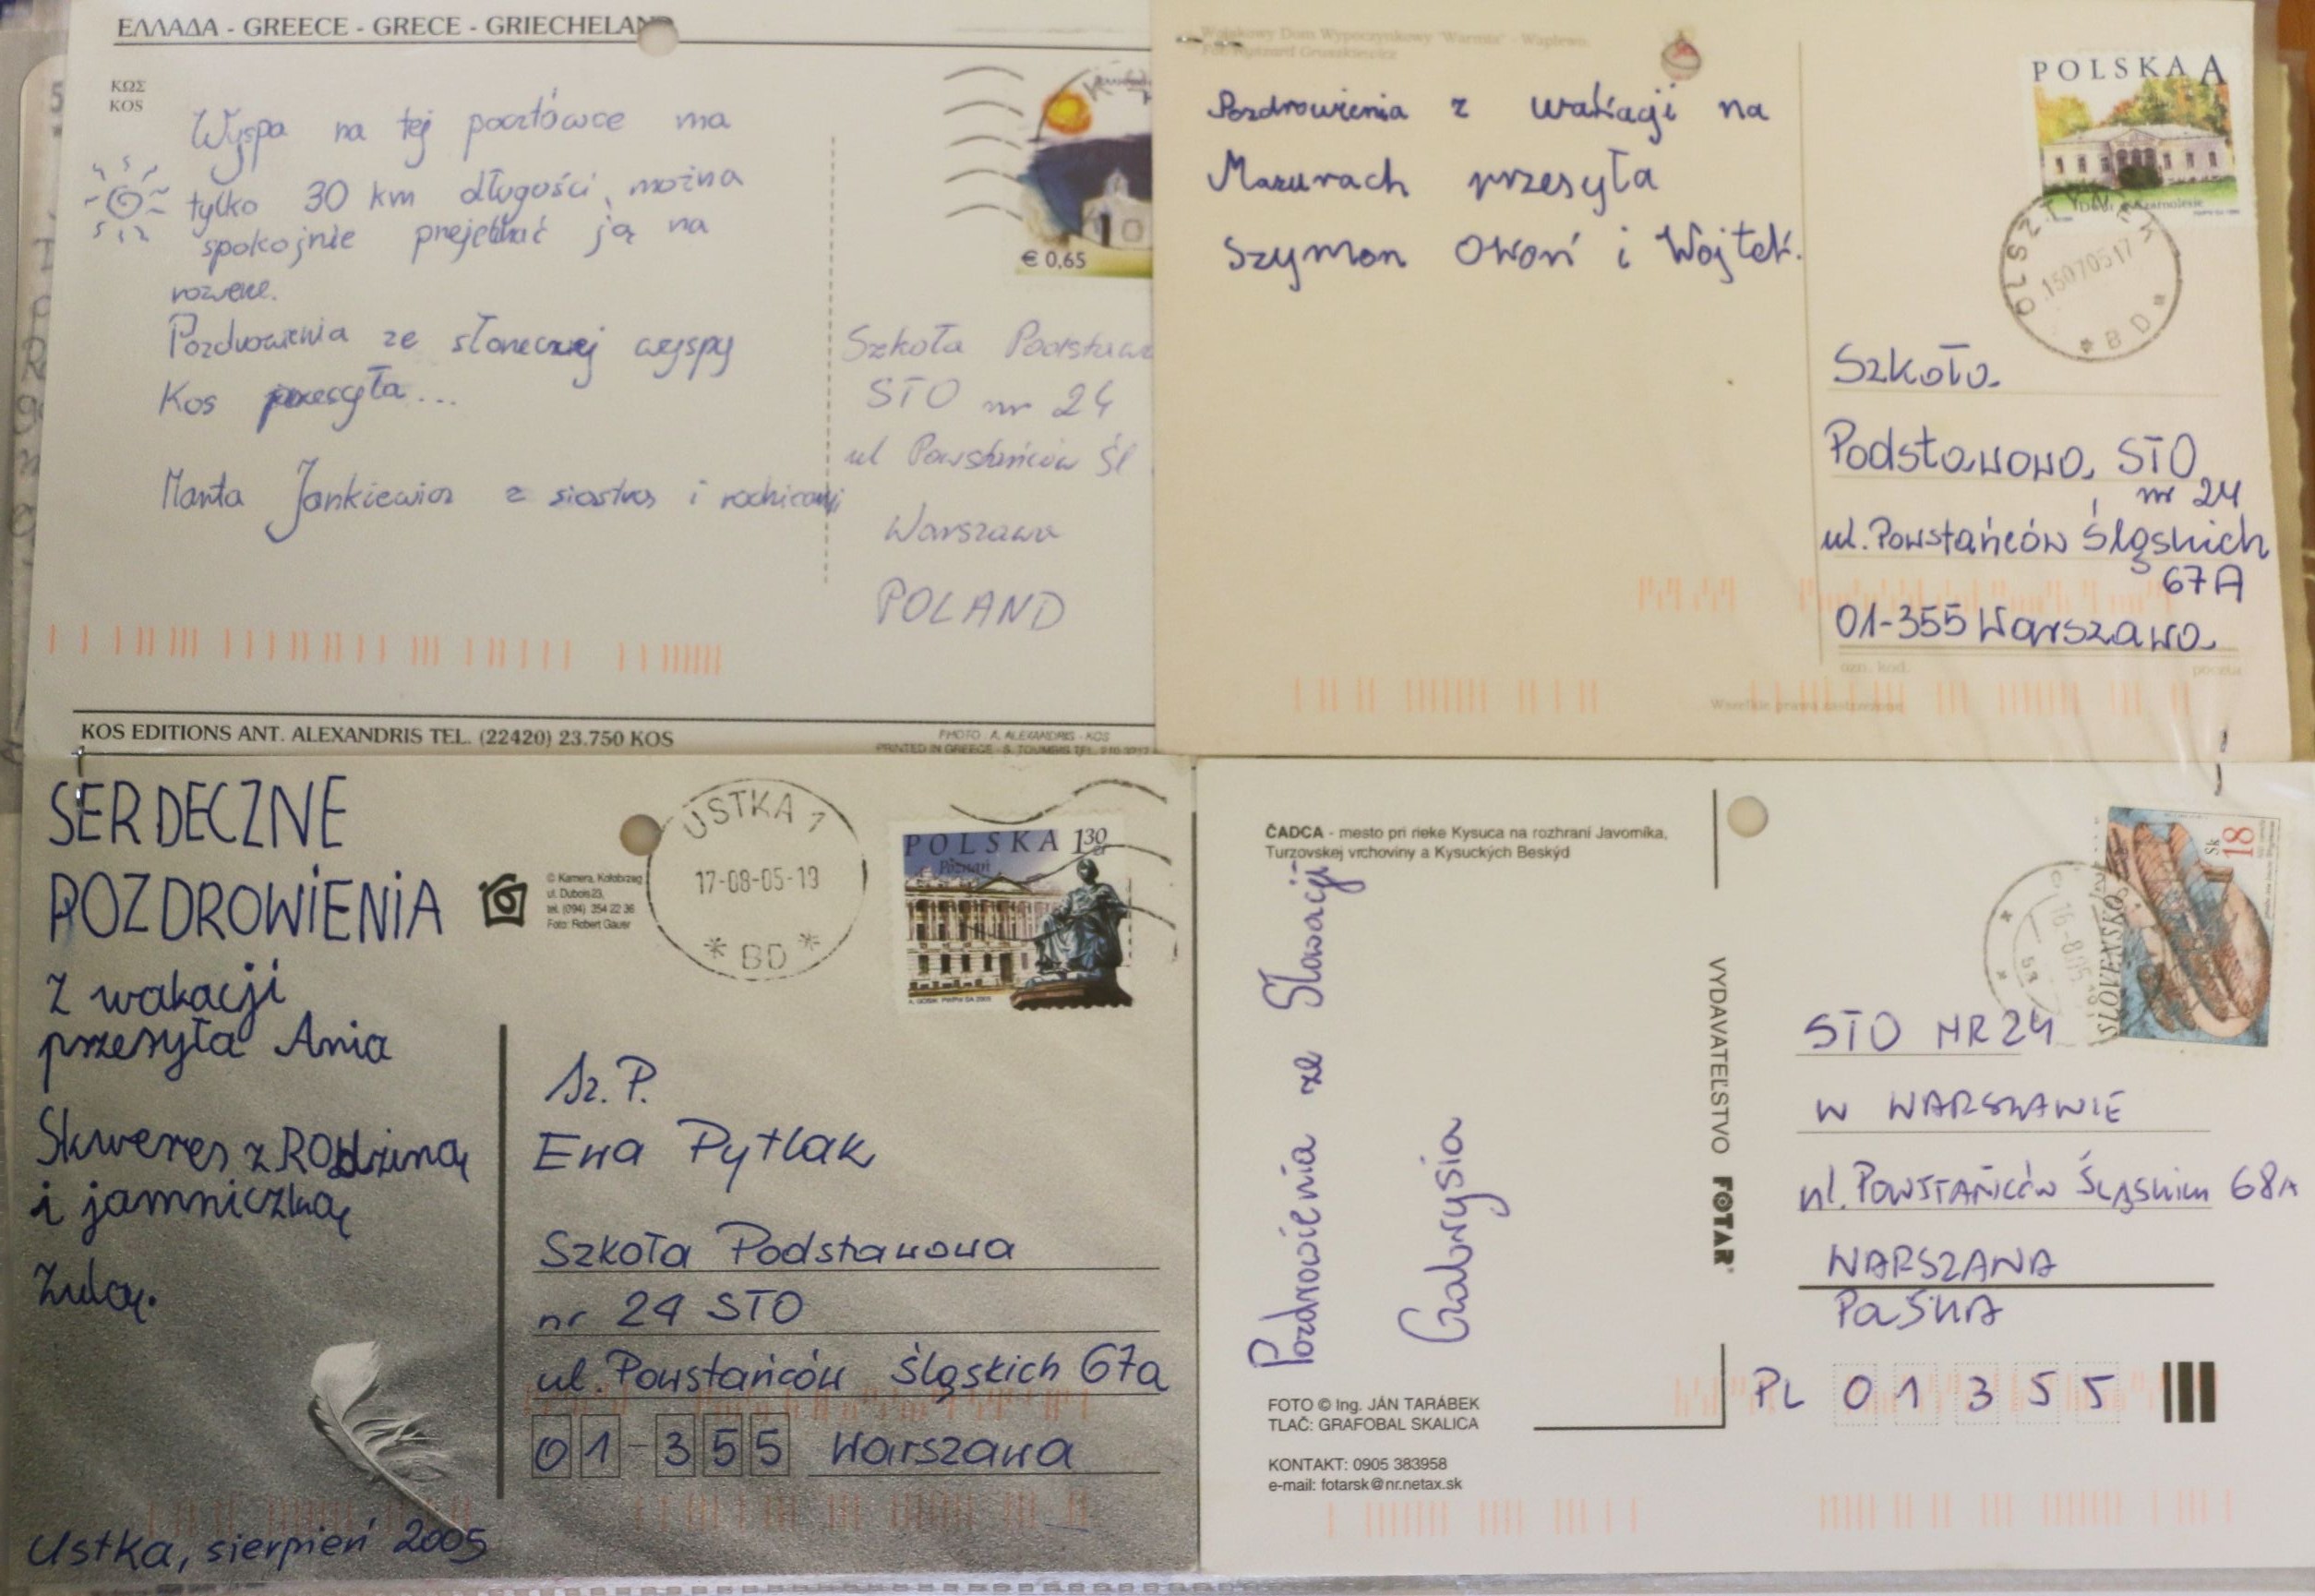 ΕΛΛΑΔΑ - GREECE - GRECE - GRIECHELAND
ΚΩΣ
KOS
Wyspa na tej pocztówce ma
tylko 30 km długości, można
spokojnie przejechać ją na
rowerze.
Pozdrowienia ze słonecznej wyspy
Kos przesyła...
Marta Jankiewicz z siostrą i rodzicami
€ 0,65
Szkoła Podstaw
STO nr 24
ul Powstańców Śl
Warszawa
POLAND
KOS EDITIONS ANT. ALEXANDRIS TEL. (22420) 23.750 KOS
PHOTO : A. ALEXANDRIS - KOS
PRINTED IN GREECE - S. TOUMBIS TEL. 210 3217
Wojskowy Dom Wypoczynkowy "Warmia" - Waplewo.
Fot. Ryszard Gruszkiewicz
Pozdrowienia z wakacji na
Mazurach przesyła
Szymon Okoń i Wojtek.
POLSKA A
OLSZTYNEK
15070517
* B D *
Szkoła
Podstawowa STO
nr 24
ul. Powstańców Śląskich
67A
01-355 Warszawa
ozn. kod. poczta
Wszelkie prawa zastrzeżone
SERDECZNE
POZDROWIENIA
z wakacji
przesyła Ania
Skweres z Rodziną
i jamniczką
Zulą.
Ustka, sierpień 2005
© Kamera, Kołobrzeg
ul. Dubois 23,
tel. (094) 354 22 36
Foto: Robert Gauer
USTKA 1
17-08-05-19
* BD *
POLSKA 130 zł
Poznań
Sz. P.
Ewa Pytlak
Szkoła Podstawowa
nr 24 STO
ul. Powstańców Śląskich 67a
01-355 Warszawa
ČADCA - mesto pri rieke Kysuca na rozhraní Javorníka,
Turzovskej vrchoviny a Kysuckých Beskýd
Pozdrowienia ze Słowacji
Gabrysia
VYDAVATEĽSTVO FOTAR
Sk 18
SLOVENSKO
STO NR 24
W WARSZAWIE
ul. POWSTAŃCÓW ŚLĄSKICH 68A
WARSZAWA
POLSKA
PL 01355
FOTO © Ing. JÁN TARÁBEK
TLAČ: GRAFOBAL SKALICA
KONTAKT: 0905 383958
e-mail: fotarsk@nr.netax.sk